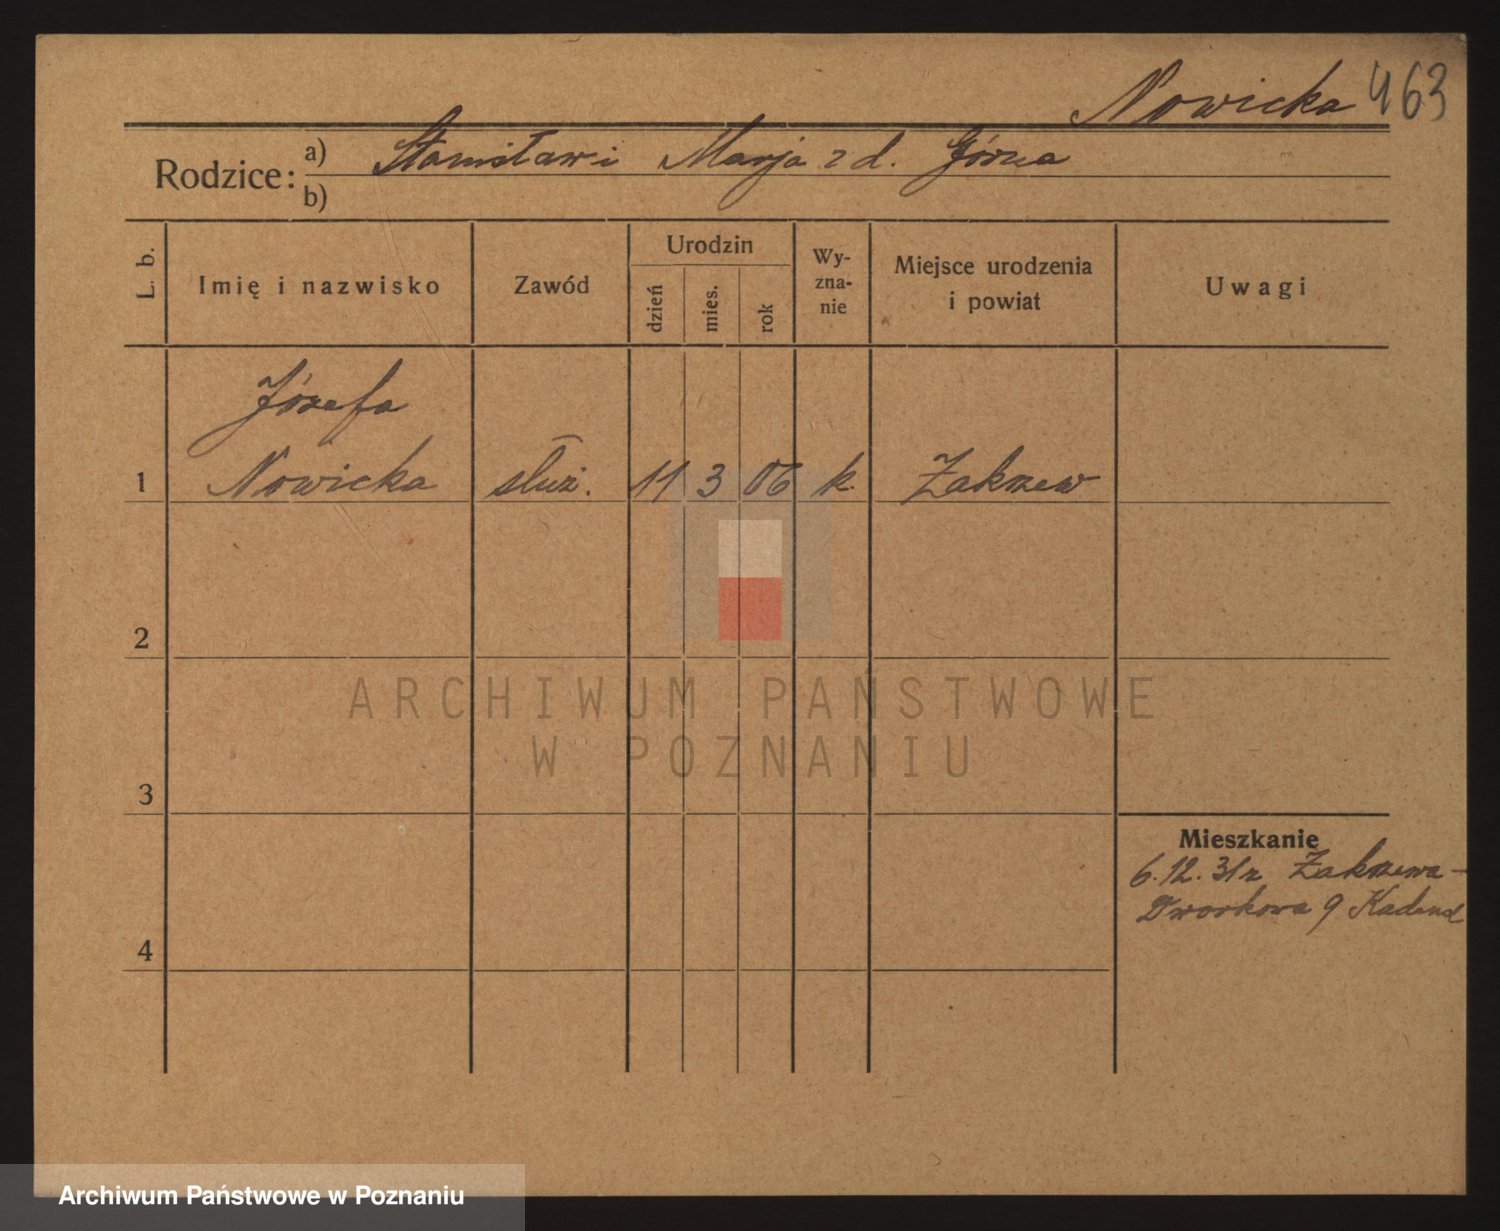 Nowicka 463
Rodzice: a) Stanisław i Marja z d. Górna
b)
L. b.
Imię i nazwisko
Zawód
Urodzin
dzień
mies.
rok
Wy-
zna-
nie
Miejsce urodzenia
i powiat
Uwagi
Józefa
1 Nowicka służ. 11 3 06 k. Zakrzew
2
3
4
Mieszkanie
6.12.31 r Zakrzewa -
Dworkowa 9
ARCHIWUM PAŃSTWOWE
W POZNANIU
Archiwum Państwowe w Poznaniu